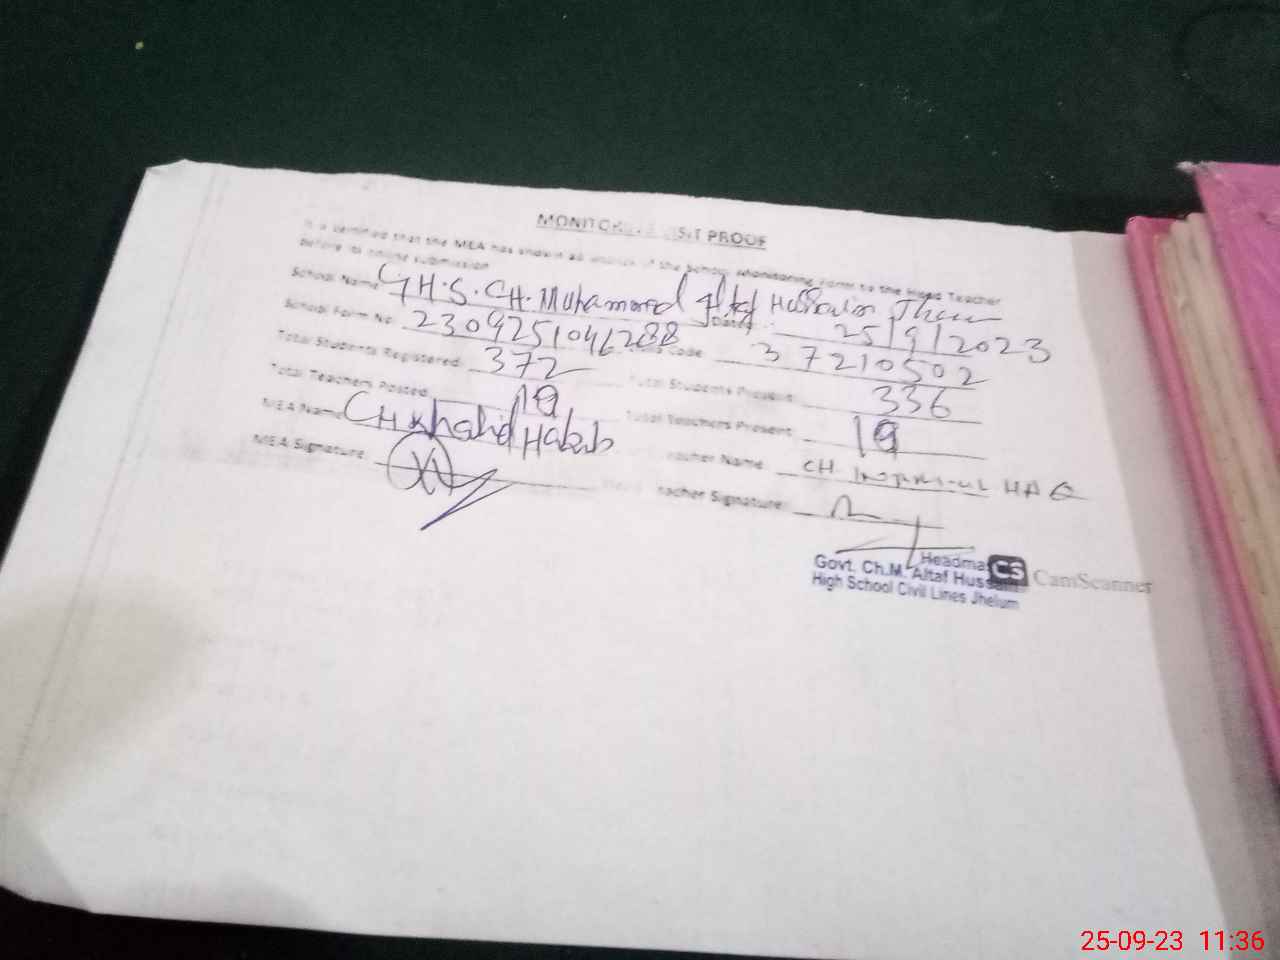 MONITORING VISIT PROOF
It is certified that the MEA has shown all of the School Monitoring Form to the Head Teacher
before its online submission
School Name G.H.S. CH. Muhammad Altaf Hussain
Date: 25/9/2023
School Form No. 230925104
Code 37210502
Total Students Registered: 372 Total Students Present: 336
Total Teachers Posted: 19 Total Teachers Present: 19
MEA Name CH Khalid Habib
Teacher Name CH HAQ
MEA Signature: Teacher Signature:
Headma
Govt. Ch.M. Altaf Hussain
High School Civil Lines Jhelum
CS CamScanner
25-09-23 11:36